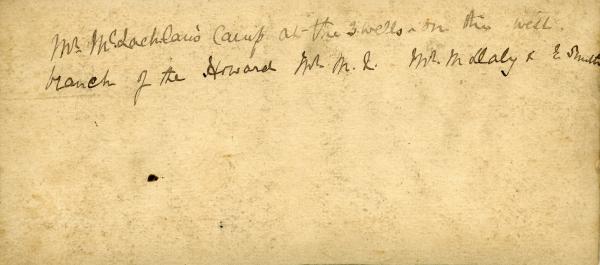 Mr. McLachlan's Camp at the 3 wells - on the west
branch of the Howard Mr. M. L. Mr. M Daly & E Smith